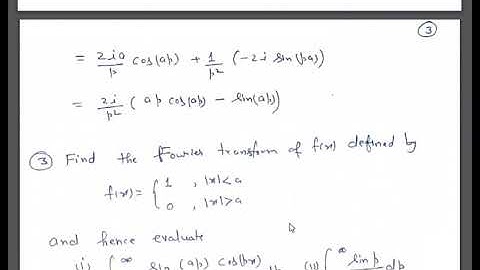 3
= 2ia/p cos(ap) + 1/p² (-2i sin(pa))
= 2i/p² (ap cos(ap) - sin(ap))
3 Find the Fourier transform of f(x) defined by
f(x) = { 1 , |x|<a
0 , |x|>a
and hence evaluate
(i) ∫ ∞ sin(ap) cos(px) (ii) ∫ ∞ sin p dp